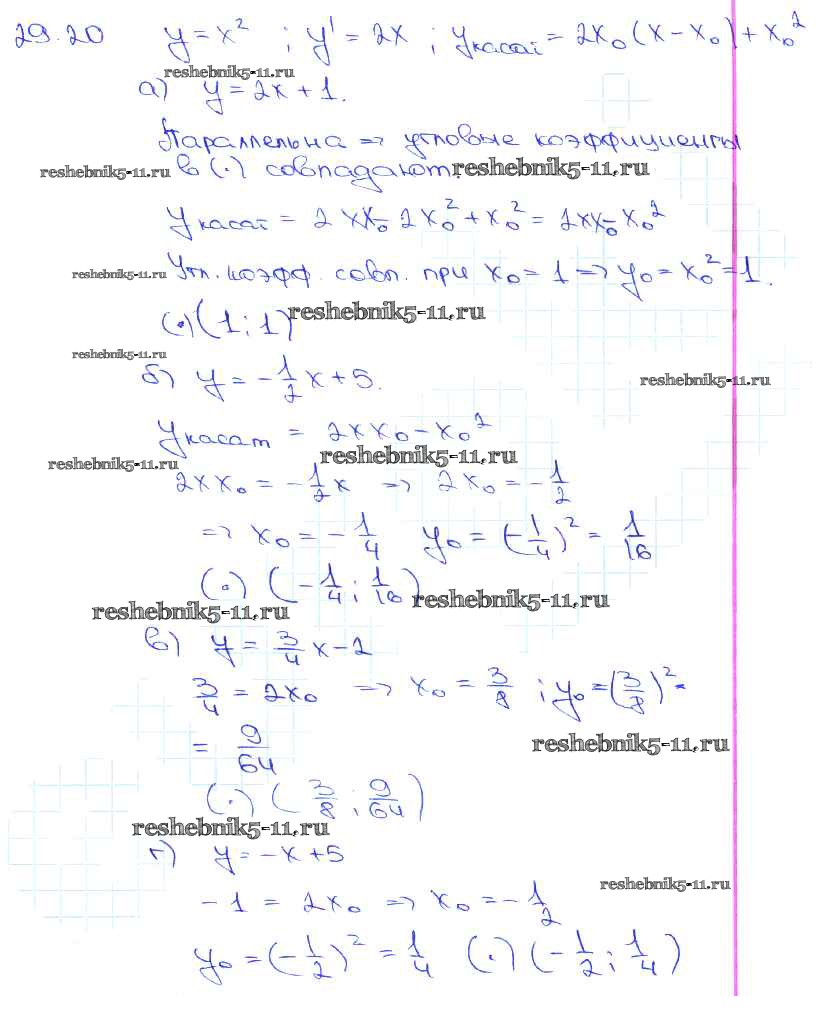 29.20 y = x² ; y' = 2x ; yкасат = 2x₀(x - x₀) + x₀²
reshebnik5-11.ru
а) y = 2x + 1.
Параллельна => угловые коэффициенты
reshebnik5-11.ru в (·) совпадают. reshebnik5-11.ru
yкасат = 2xx₀ - 2x₀² + x₀² = 2xx₀ - x₀²
reshebnik5-11.ru Угл. коэфф. совп. при x₀ = 1 => y₀ = x₀² = 1.
(·) (1; 1) reshebnik5-11.ru
reshebnik5-11.ru
б) y = -1/2 x + 5. reshebnik5-11.ru
yкасат = 2xx₀ - x₀²
reshebnik5-11.ru reshebnik5-11.ru
2xx₀ = -1/2 x => 2x₀ = -1/2
=> x₀ = -1/4 y₀ = (-1/4)² = 1/16
(·) (-1/4; 1/16)
reshebnik5-11.ru reshebnik5-11.ru
в) y = 3/4 x - 2
3/4 = 2x₀ => x₀ = 3/8 ; y₀ = (3/8)² =
= 9/64 reshebnik5-11.ru
(·) (3/8; 9/64)
reshebnik5-11.ru
г) y = -x + 5
reshebnik5-11.ru
-1 = 2x₀ => x₀ = -1/2
y₀ = (-1/2)² = 1/4 (·) (-1/2; 1/4)